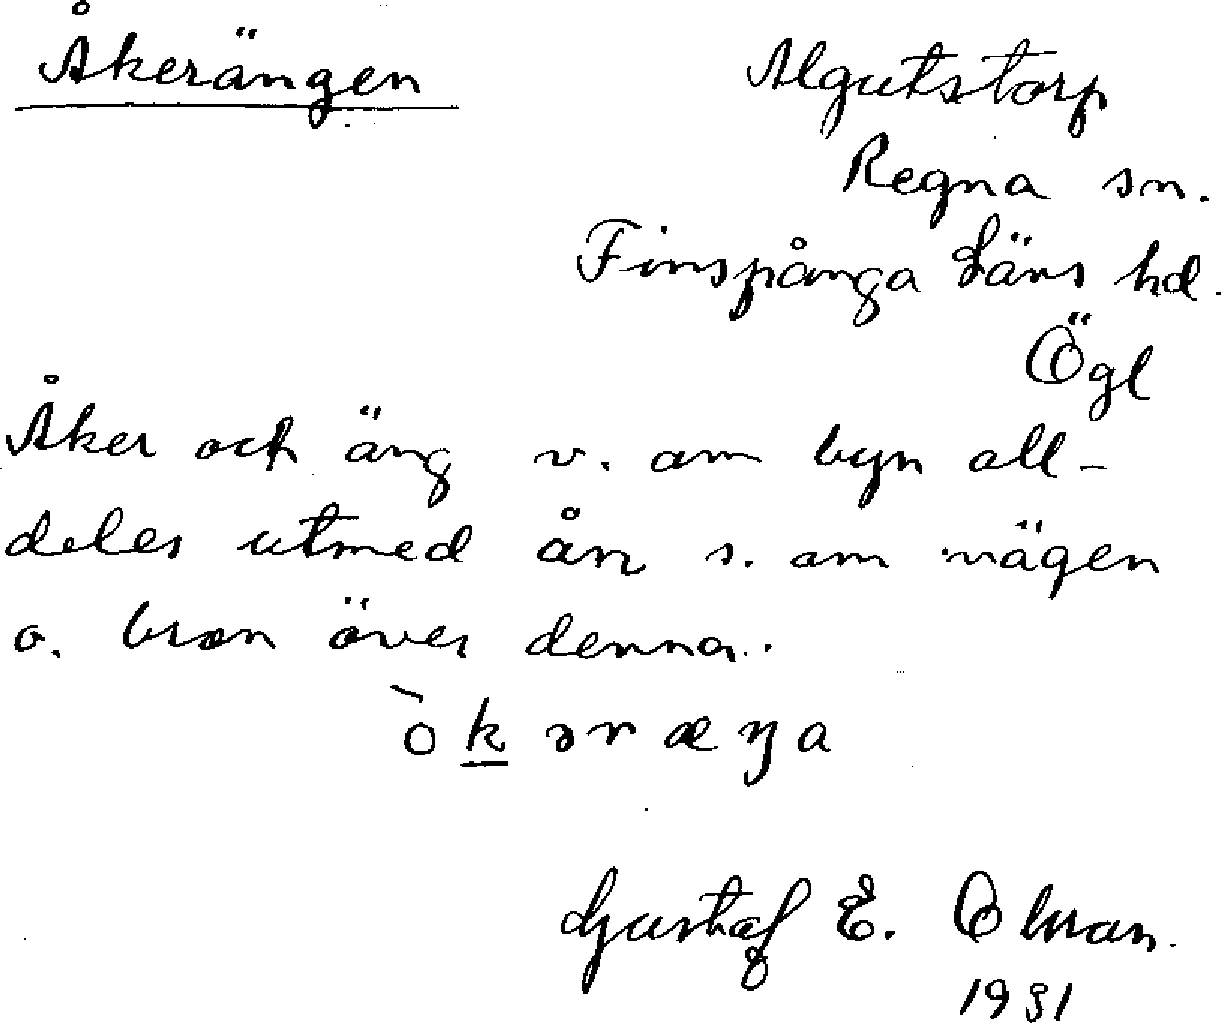 Åkerängen
Algutstorp
Regna sn.
Finspånga Läns hd.
Ögl
Åker och äng v. om byn all-
deles utmed ån s. om vägen
o. bron över denna.
òkəræŋa
Gustaf E. Olman.
1931